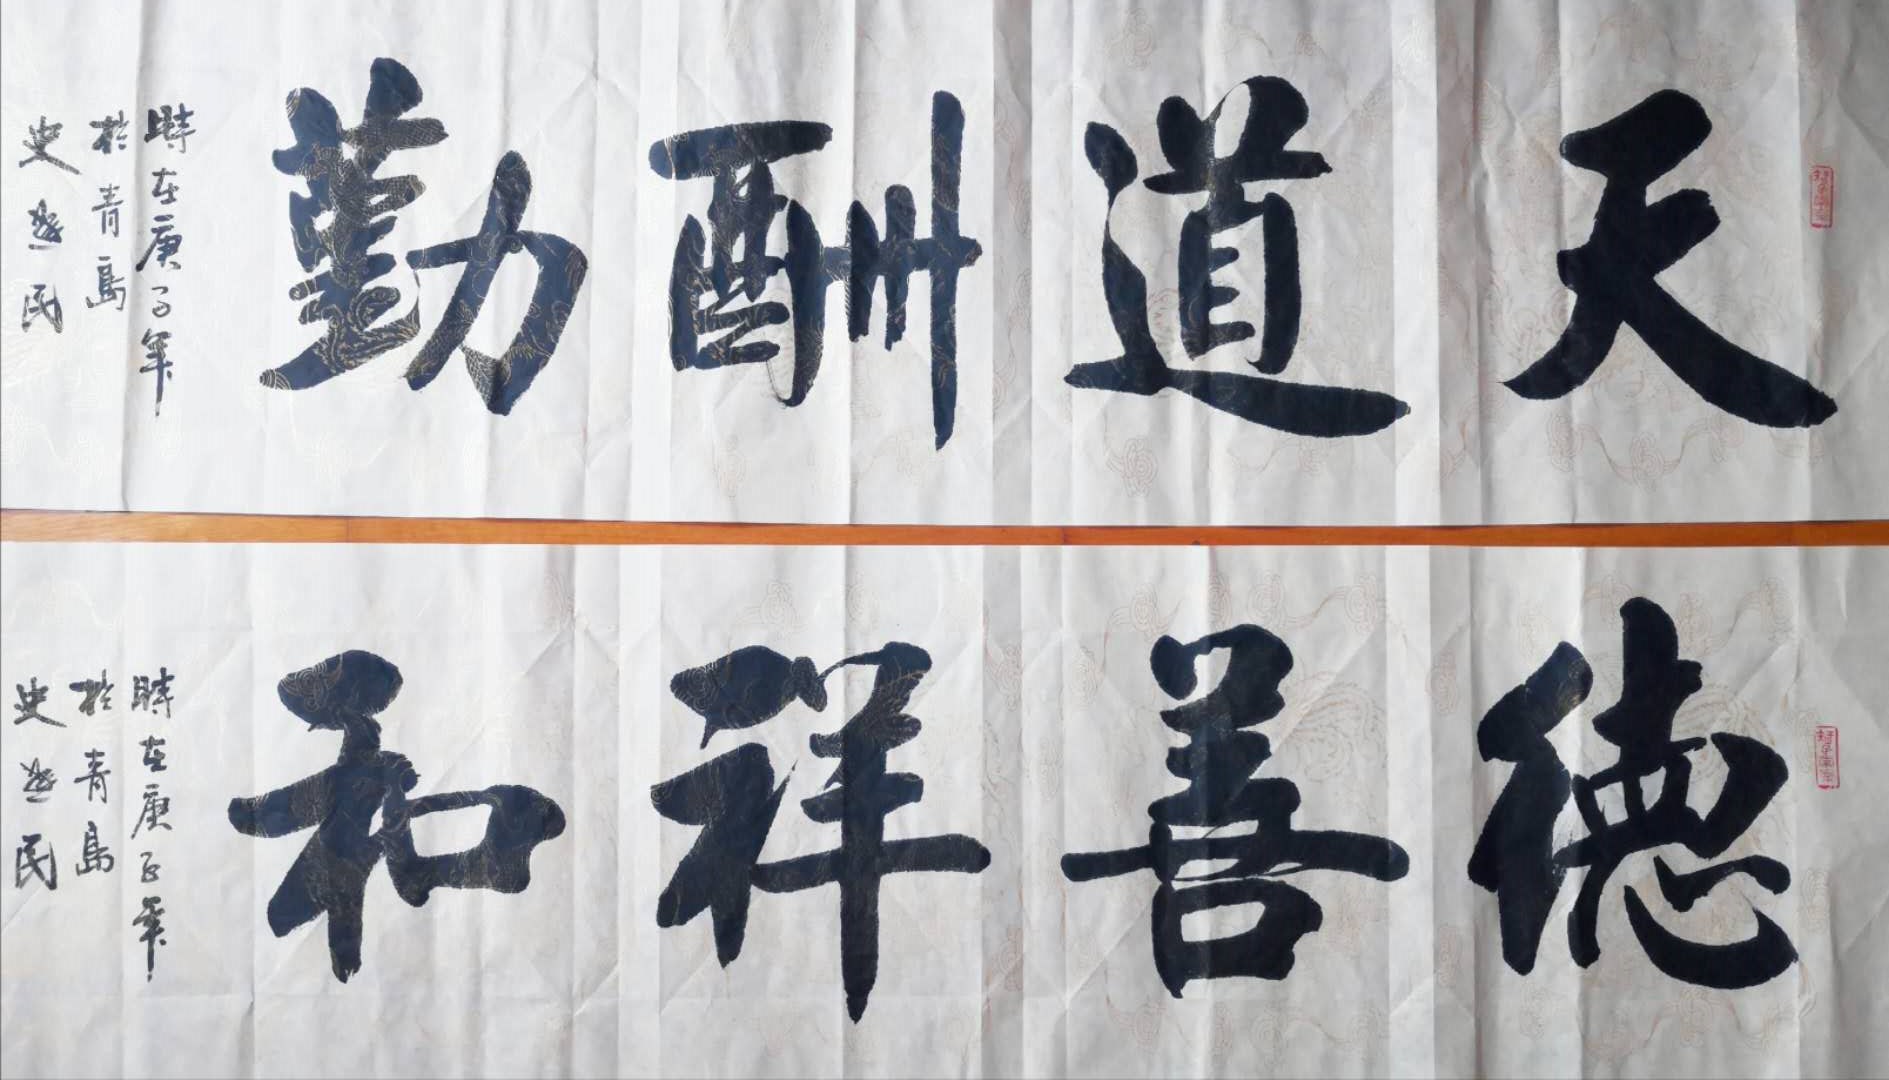 天道酬勤
時在庚子年
於青島
史遊民
德善祥和
時在庚子年
於青島
史遊民